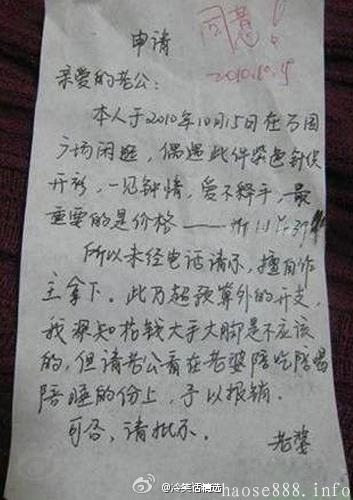 同意！
2010.10.15
申请
亲爱的老公：
本人于2010年10月15日在万国
广场闲逛，偶遇此件紫色针织
开衫，一见钟情，爱不释手，最
重要的是价格——
所以未经电话请示，擅自作
主拿下。此乃超预算外的开支，
我深知花钱大手大脚是不应该
的，但请老公看在老婆陪吃陪喝
陪睡的份上，予以报销。
可否，请批示。
老婆
@冷笑话精选
haose888.info